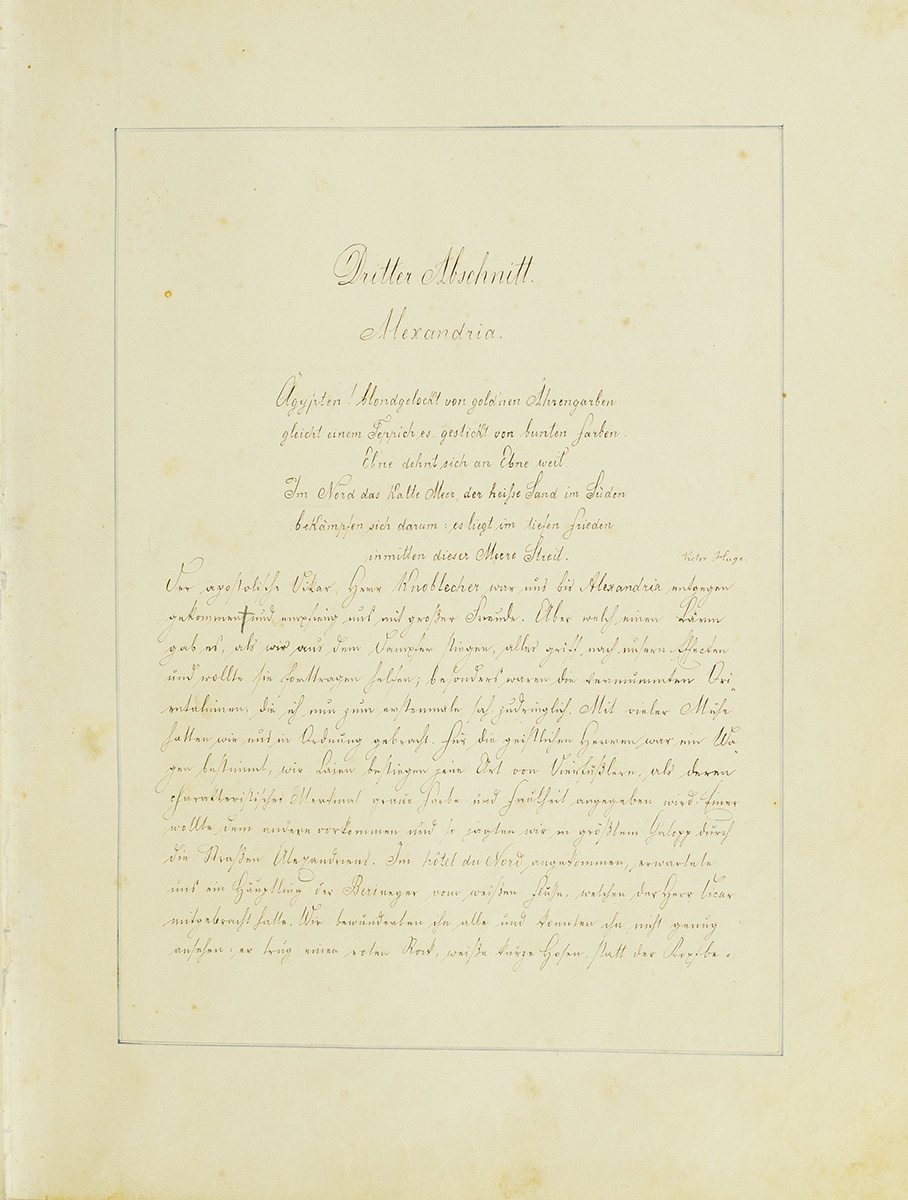 Dritter Abschnitt.
Alexandria.
Ägypten! blondgelockt von gold'nen Ährengarben
gleicht einem Teppich es, gestickt von bunten Farben,
Ebne dehnt sich an Ebne weit
Im Nord das Kalte Meer, der heiße Sand im Süden
bekämpfen sich darum: es liegt im tiefen Frieden
inmitten dieser Meere Streit.
Victor Hugo.
Der apostolische Vikar, Herr Knoblecher war uns bis Alexandria entgegen
gekommen und empfieng uns mit großer Freude. Aber welch einen Lärm
gab es, als wir aus dem Dampfer stiegen, alles griff nach unsern Effecten
und wollte sie forttragen helfen; besonders waren die vermummten Ori
entalinnen, die ich nun zum erstenmale sah, zudringlich. Mit vieler Mühe
hatten wir uns in Ordnung gebracht. Für die geistlichen Herren war ein Wa
gen bestimmt, wir Laien bestiegen eine Art von Vierfüßlern, als deren
charakteristisches Merkmal graue Farbe und Faulheit angegeben wird. Einer
wollte dem andern vorkommen und so jagten wir in größtem Galopp durch
die Straßen Alexandriens. Im hôtel du Nord angekommen, erwartete
uns ein Häuptling der Berineger vom weißen Fluße, welchen der Herr Vicar
mitgebracht hatte. Wir bewunderten ihn alle und konnten ihn nicht genug
ansehen; er trug einen roten Rock, weiße kurze Hosen, statt der Kopfbe-